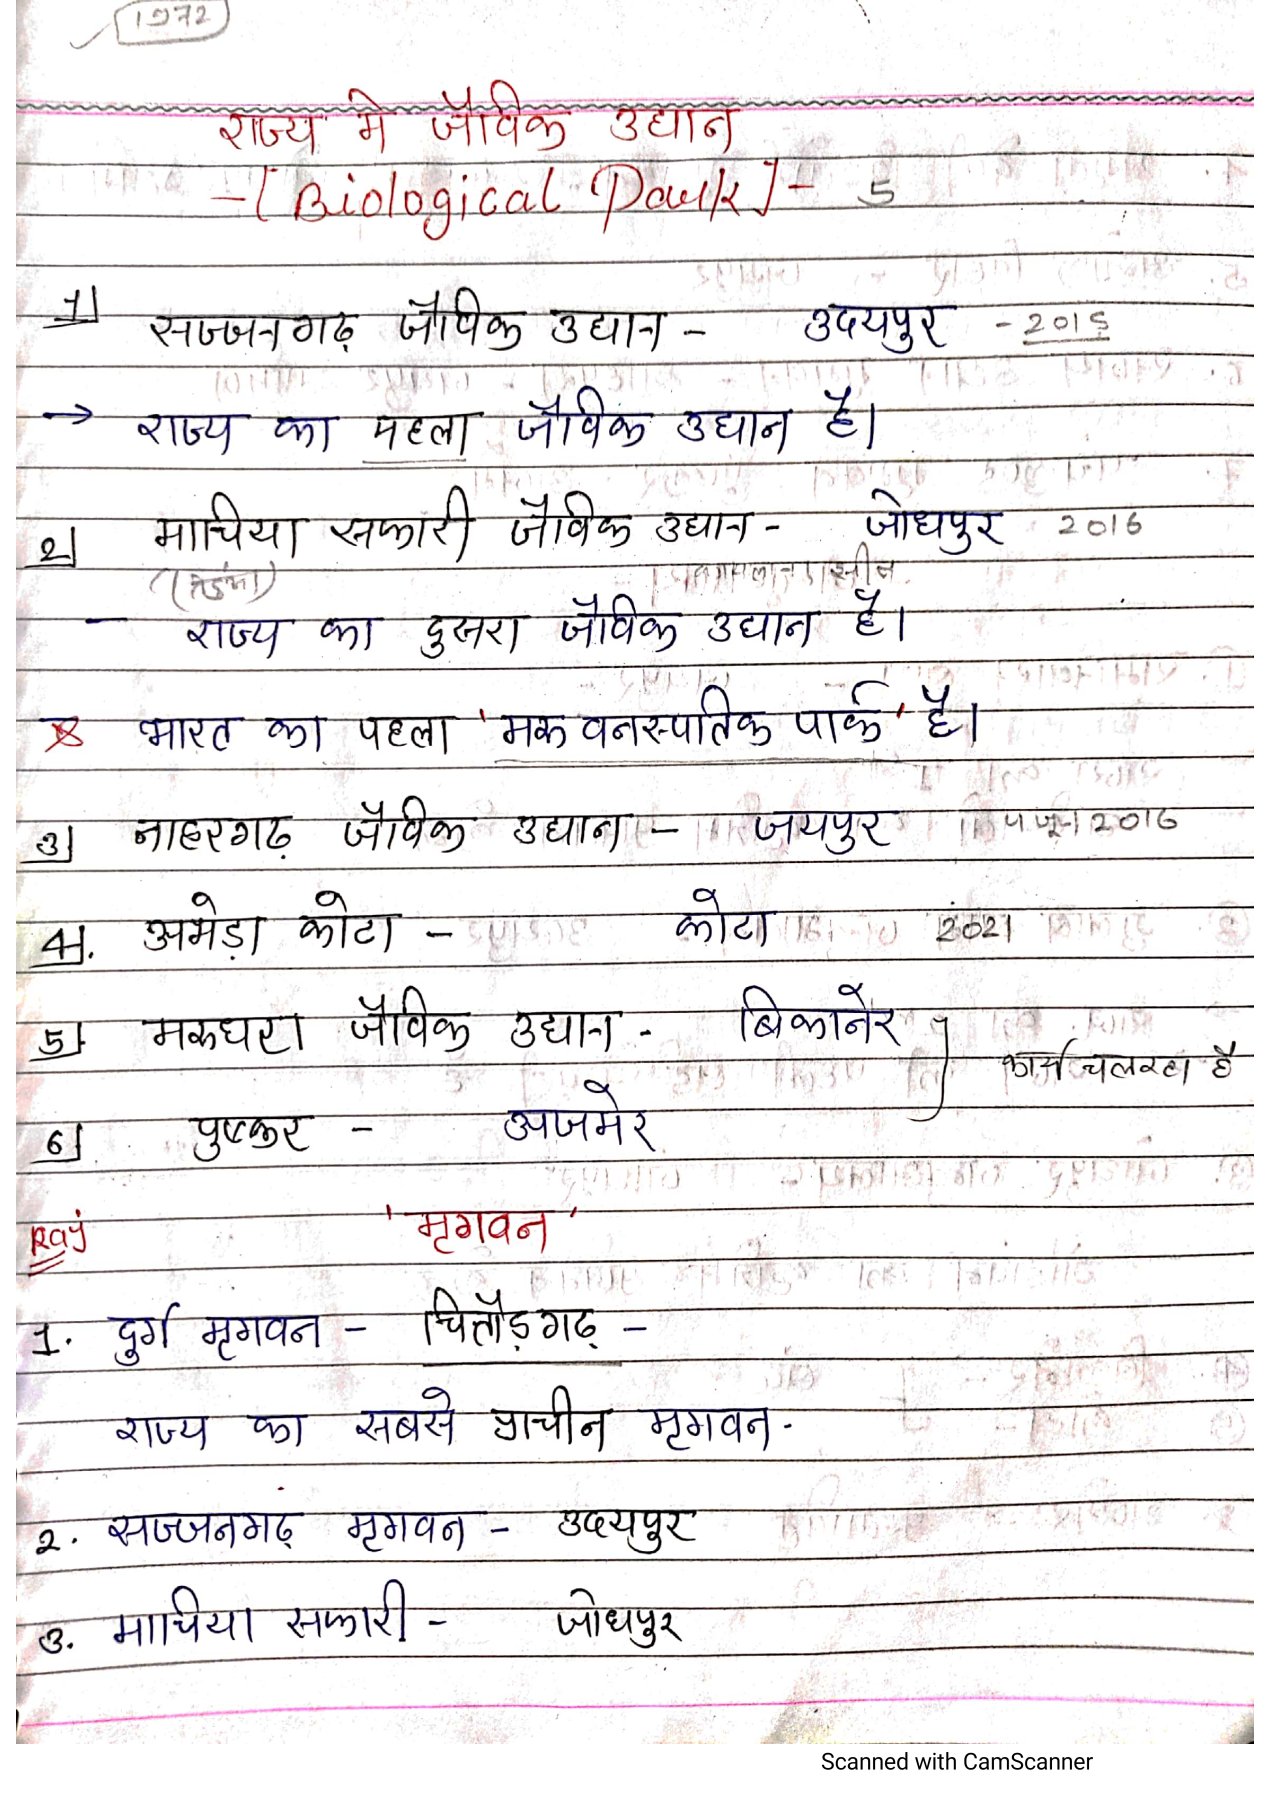 1972
राज्य मे जैविक उद्यान
-[Biological Park]- 5
1] सज्जनगढ़ जैविक उद्यान - उदयपुर - 2015
→ राज्य का पहला जैविक उद्यान है।
2] माचिया सफारी जैविक उद्यान - जोधपुर 2016
- राज्य का दुसरा जैविक उद्यान है।
भारत का पहला 'मरू वनस्पतिक पार्क' है।
3] नाहरगढ़ जैविक उद्यान - जयपुर 2016
4]. अमेड़ा कोटा - कोटा 2021
5] मरूधरा जैविक उद्यान - बिकानेर
कार्य चल रहा है
6] पुष्कर - अजमेर
Raj 'मृगवन'
1. दुर्ग मृगवन - चित्तौड़गढ़ -
राज्य का सबसे प्राचीन मृगवन.
2. सज्जनगढ़ मृगवन - उदयपुर
3. माचिया सफारी - जोधपुर
Scanned with CamScanner